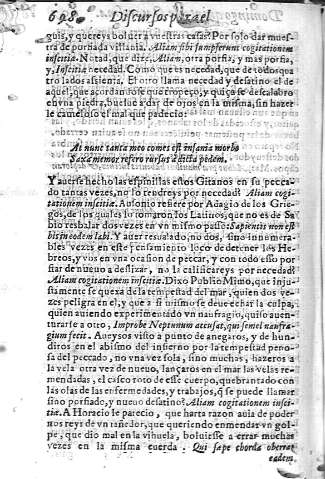 698 Discursos para el
guis, y quereys boluer a vuestras casas? Por solo dar mues-
tra de porfiada villania. Aliam sibi sumpserunt cogitationem
inscitia. Notad, que dize, Aliam, otra porfia, y mas porfia,
y, Inscitia necedad. Como que es necedad, que de todos qua
tro lados assienta. El otro llama necedad y desatino el de
aquel, que acordandose que tropeço, y quiça se descalabro
en vna piedra, buelue a dar de ojos en la misma, sin hazer
le cauteloso el mal que padecio.
At nunc tanta meo comes est insania morbo
Saxa memor refero rursus ad icta pedem.
Y auerse hecho las espinillas estos Gitanos en su peccar
do tantas vezes, no lo tendreys por necedad? Aliam cogi-
tationem inscitiæ. Ausonio refiere por Adagio de los Grie-
gos, de los quales lo tomaron los Latinos, que no es de Sa-
bio resbalar dos vezes en vn mismo passo. Sapientis non est
bis in eodem labi. Y auer resualado, no dos, sino innumera-
bles vezes en este pensamiento loco de detener los He-
breos, y vos en vna ocasion de peccar, y con todo esso por
fiar de nueuo a deslizar, no la calificareys por necedad?
Aliam cogitationem inscitiæ. Dixo Publio Mimo, que injus-
tamente se quexa de la tempestad del mar, quien dos ve-
zes peligra en el, y que a si mismo se deue echar la culpa,
quien auiendo experimentado vn naufragio, quiso auen-
turarse a otro, Improbe Neptunum accusat, qui semel naufra-
gium fecit. Aueysos visto a punto de anegaros, y de hun-
diros en el abismo del infierno por la tempestad peno-
sa del peccado, no vna vez sola, sino muchas, hazeros a
la vela otra vez de nueuo, lançaros en el mar las velas re-
mendadas, el casco roto de esse cuerpo, quebrantado con
las olas de las enfermedades, y trabajos, q̃ se puede llamar
sino porfiado, y nueuo desatino? Aliam cogitationem insci-
tiæ. A Horacio le parecio, que harta razon auia de poder
nos reyr de vn tañedor, que queriendo enmendar vn gol-
pe, que dio mal en la vihuela, boluiesse a errar muchas
vezes en la misma cuerda. Qui sæpe chorda oberrat
eadem.